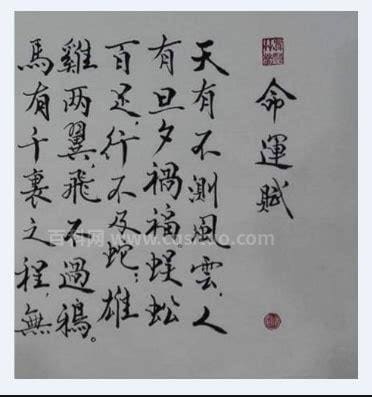 命運賦
天有不測風雲,人
有旦夕禍福。蜈蚣
百足,行不及蛇;雄
雞两翼,飛不過鴉。
馬有千裏之程,無